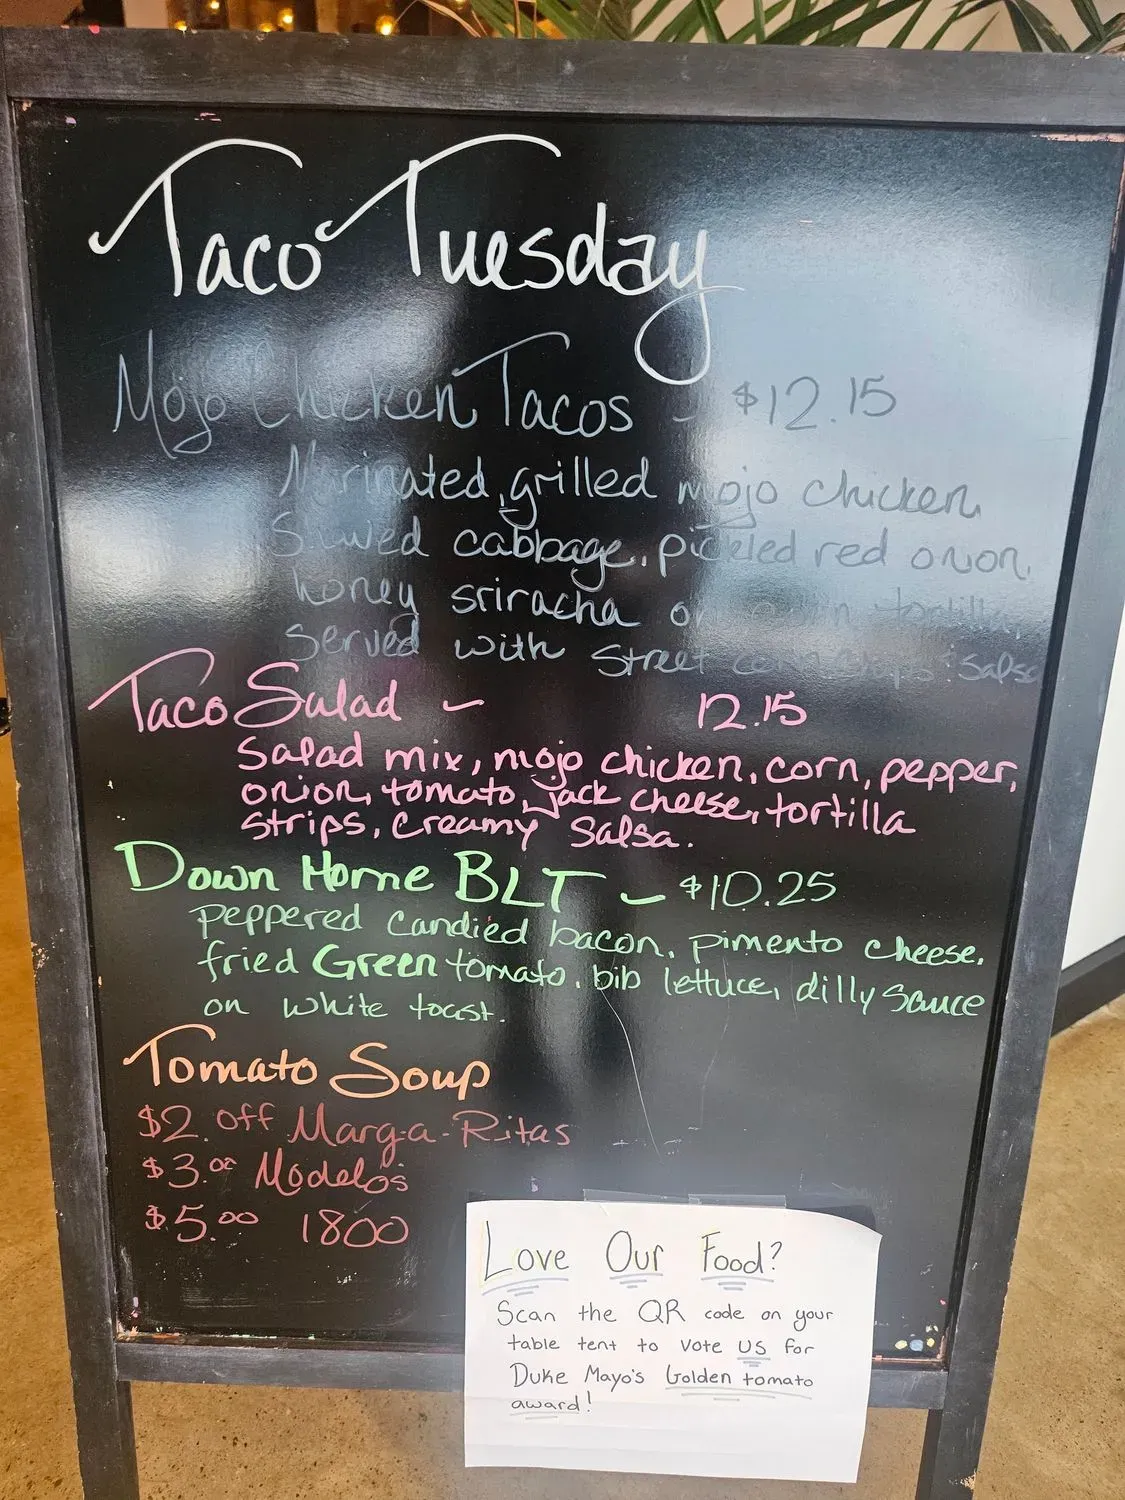 Taco Tuesday
Mojo Chicken Tacos - $12.15
Marinated, grilled mojo chicken,
cabbage, pickled red onion,
honey sriracha on corn tortilla,
served with street corn salsa
Taco Salad - 12.15
Salad mix, mojo chicken, corn, pepper,
onion, tomato, jack cheese, tortilla
strips, creamy salsa.
Down Home BLT - $10.25
peppered candied bacon, pimento cheese,
fried Green tomato, bib lettuce, dilly sauce
on white toast.
Tomato Soup
$2 off Marg-a-Ritas
$3.00 Modelos
$5.00 1800
Love Our Food?
Scan the QR code on your
table tent to vote US for
Duke Mayo's Golden tomato
award!